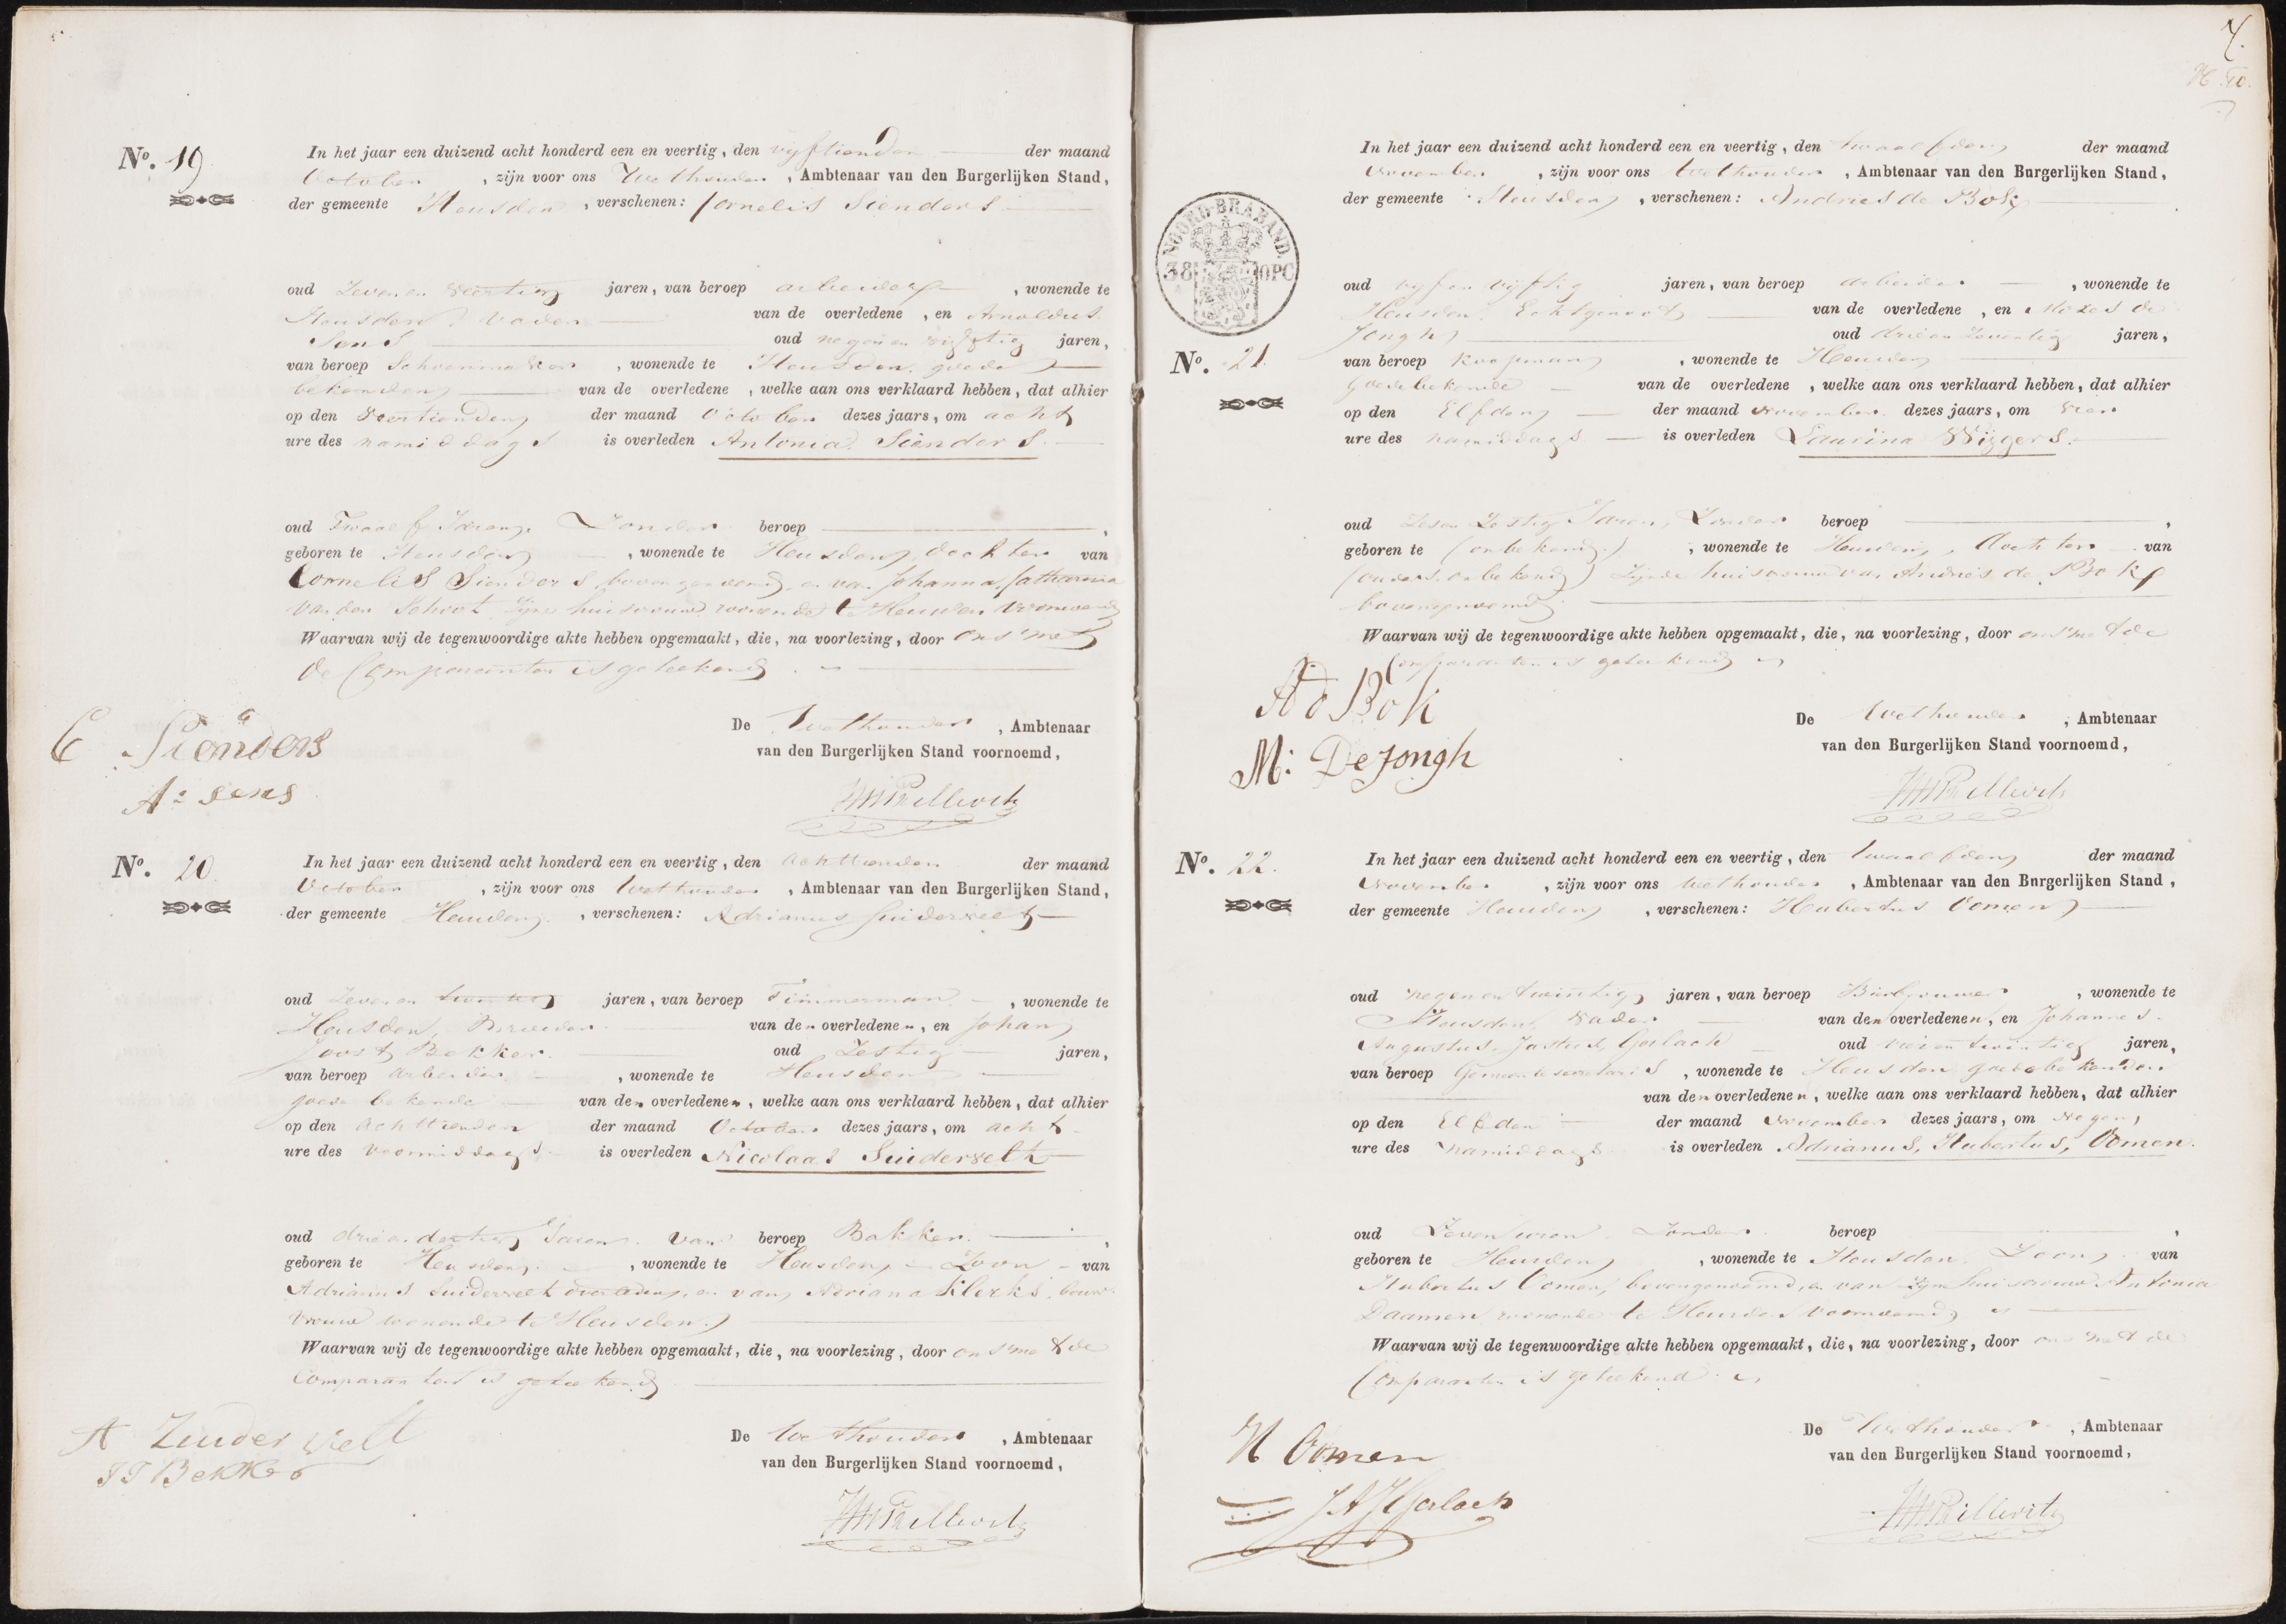 No. 19
In het jaar een duizend acht honderd een en veertig, den vijftienden der maand
October , zijn voor ons Wethouder , Ambtenaar van den Burgerlijken Stand,
der gemeente Heusden , verschenen: Cornelis Sienders
oud Zeven en veertig jaren, van beroep arbeider , wonende te
Heusden, vader van de overledene , en Arnoldus
Sens oud negen en vijftig jaren,
van beroep Schoenmaker , wonende te Heusden, goede
bekenden van de overledene , welke aan ons verklaard hebben, dat alhier
op den veertienden der maand October dezes jaars, om acht
ure des namiddags is overleden Antonia Sienders.
oud Twaalf Jaren, Zonder beroep ,
geboren te Heusden , wonende te Heusden, dochter van
Cornelis Sienders bovengenoemd, en van Johanna Catharina
van den Schoot zyne huisvrouw wonende te Heusden voornoemd
Waarvan wij de tegenwoordige akte hebben opgemaakt, die, na voorlezing, door ons met
de Comparanten is geteekend.
De Wethouder , Ambtenaar
van den Burgerlijken Stand voornoemd,
C Sienders
A: sens
No. 20
In het jaar een duizend acht honderd een en veertig, den achttienden der maand
October , zijn voor ons Wethouder , Ambtenaar van den Burgerlijken Stand,
der gemeente Heusden , verschenen: Adrianus Suidervelt
oud Zeven en twintig jaren, van beroep Timmerman , wonende te
Heusden, Broeder van den overledenen, en Johan
Joost Bekker oud Zestig jaren,
van beroep arbeider , wonende te Heusden
goede bekende van den overledenen, welke aan ons verklaard hebben, dat alhier
op den achttienden der maand October dezes jaars, om acht
ure des voormiddags is overleden Nicolaas Suidervelt
oud drie en dertig Jaren van beroep Bakker ,
geboren te Heusden , wonende te Heusden, Zoon van
Adrianus Suidervelt overleden, en van Adriana Klerks, bouw
vrouw wonende te Heusden.
Waarvan wij de tegenwoordige akte hebben opgemaakt, die, na voorlezing, door ons met de
Comparanten is geteekend
De Wethouder , Ambtenaar
van den Burgerlijken Stand voornoemd,
A Zuidervelt
JJ Bekker
7.
NOORD-BRABAND.
38 OPC
No. 21.
In het jaar een duizend acht honderd een en veertig, den twaalfden der maand
November , zijn voor ons Wethouder , Ambtenaar van den Burgerlijken Stand,
der gemeente Heusden , verschenen: Andries de Bok
oud vyf en vyftig jaren, van beroep arbeider , wonende te
Heusden, Echtgenoot van de overledene , en Mozes de
Jongh oud drie en Zeventig jaren,
van beroep Koopman , wonende te Heusden
goede bekende van de overledene , welke aan ons verklaard hebben, dat alhier
op den Elfden der maand November dezes jaars, om vier
ure des namiddags is overleden Laurina Wijgers.
oud Zes en Zestig Jaren, Zonder beroep ,
geboren te (onbekend) , wonende te Heusden, dochter van
(ouders onbekend) Zijnde huisvrouw van Andries de Bok
bovengenoemd
Waarvan wij de tegenwoordige akte hebben opgemaakt, die, na voorlezing, door ons met de
Comparanten is geteekend
A d Bok
M: De Jongh
De Wethouder , Ambtenaar
van den Burgerlijken Stand voornoemd,
No. 22.
In het jaar een duizend acht honderd een en veertig, den twaalfden der maand
November , zijn voor ons Wethouder , Ambtenaar van den Burgerlijken Stand,
der gemeente Heusden , verschenen: Hubertus Oomen
oud negen en twintig jaren, van beroep Bierbrouwer , wonende te
Heusden, Vader van den overledenen, en Johannes
Augustus Justus Gerlach oud vier en twintig jaren,
van beroep Gemeentesecretaris , wonende te Heusden goede bekenden
van den overledenen, welke aan ons verklaard hebben, dat alhier
op den Elfden der maand November dezes jaars, om Negen
ure des namiddags is overleden Adrianus, Hubertus, Oomen.
oud Zeven uren Zonder beroep ,
geboren te Heusden , wonende te Heusden, Zoon van
Hubertus Oomen, bovengenoemd, en van zyne huisvrouw Antonia
Daamen wonende te Heusden voornoemd
Waarvan wij de tegenwoordige akte hebben opgemaakt, die, na voorlezing, door ons met de
Comparanten is geteekend
De Wethouder , Ambtenaar
van den Burgerlijken Stand voornoemd,
H Oomen
J A J Gerlach